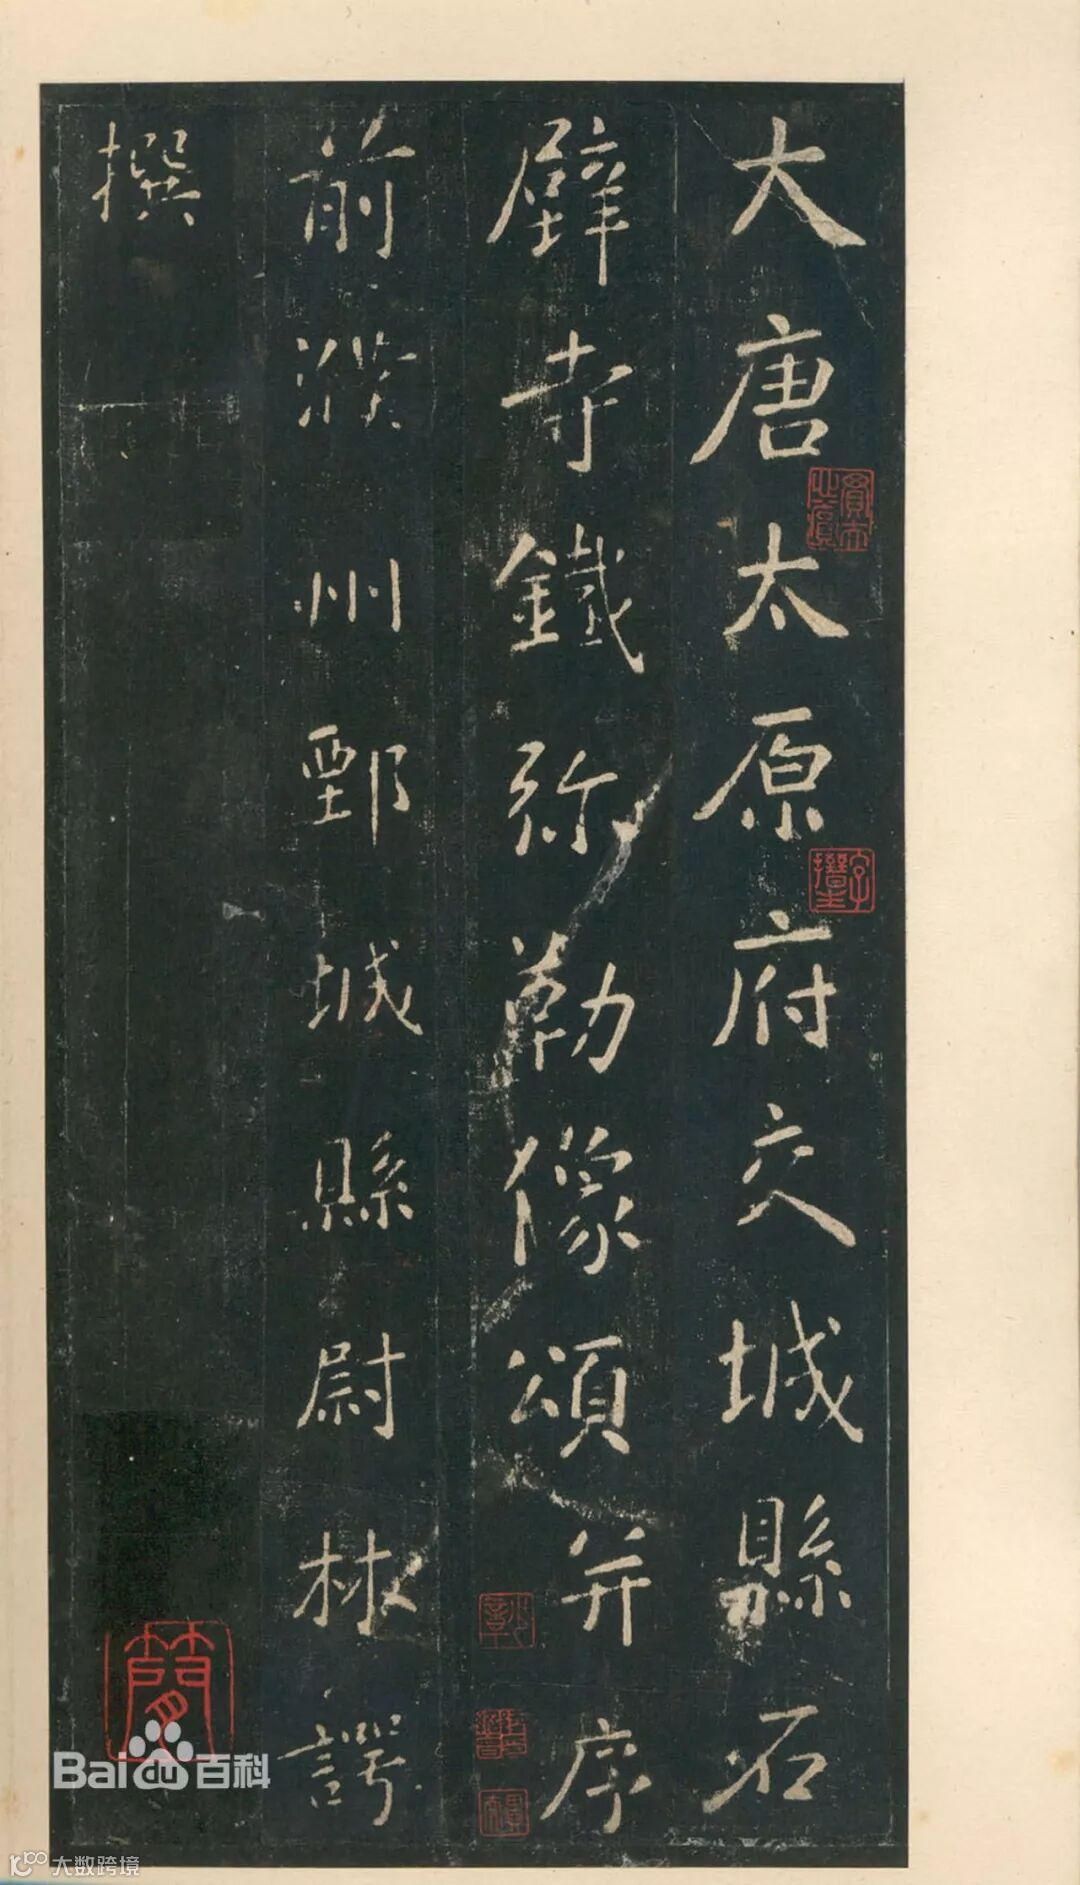 大唐太原府交城縣石
壁寺鐵弥勒像頌并序
前濮州鄄城縣尉林諤
撰
Bai百科
大数跨境